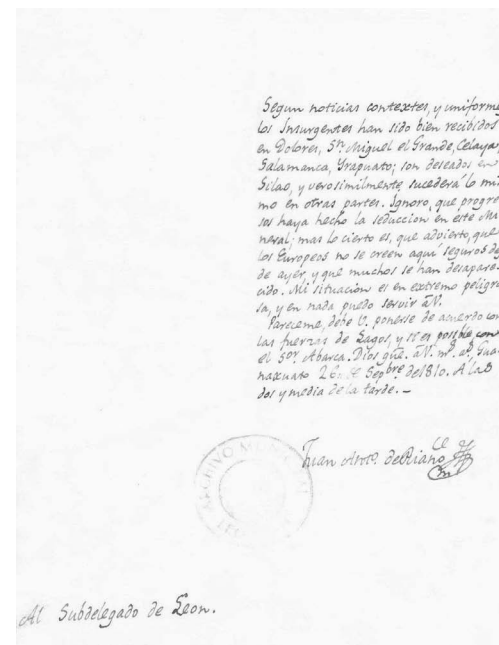 Segun noticias contextes, y uniforme
los Insurgentes han sido bien recibidos
en Dolores, Sn. Miguel el Grande, Celaya,
Salamanca, Yrapuato; son deseados en
Silao, y verosimilmente, sucederá lo mis
mo en otras partes. Ignoro, que progre
sos haya hecho la seduccion en este Mi
neral; mas lo cierto es, que advierto, que
los Europeos no se creen aquí seguros de
de ayer, y que muchos se han desapare
cido. Mi situacion es en extremo peligro
sa, y en nada puedo servir á V.
Pareceme, debe V. ponerse de acuerdo con
las fuerzas de Lagos, y si es posible con
el Sor. Abarca. Dios gûe. á V. ms. as. Gua
naxuato 26 de Sepbre de 1810. A las
dos y media de la tarde.-
Juan Anto. de Riaño
ARCHIVO MUNICIPAL
LEON
Al Subdelegado de Leon.